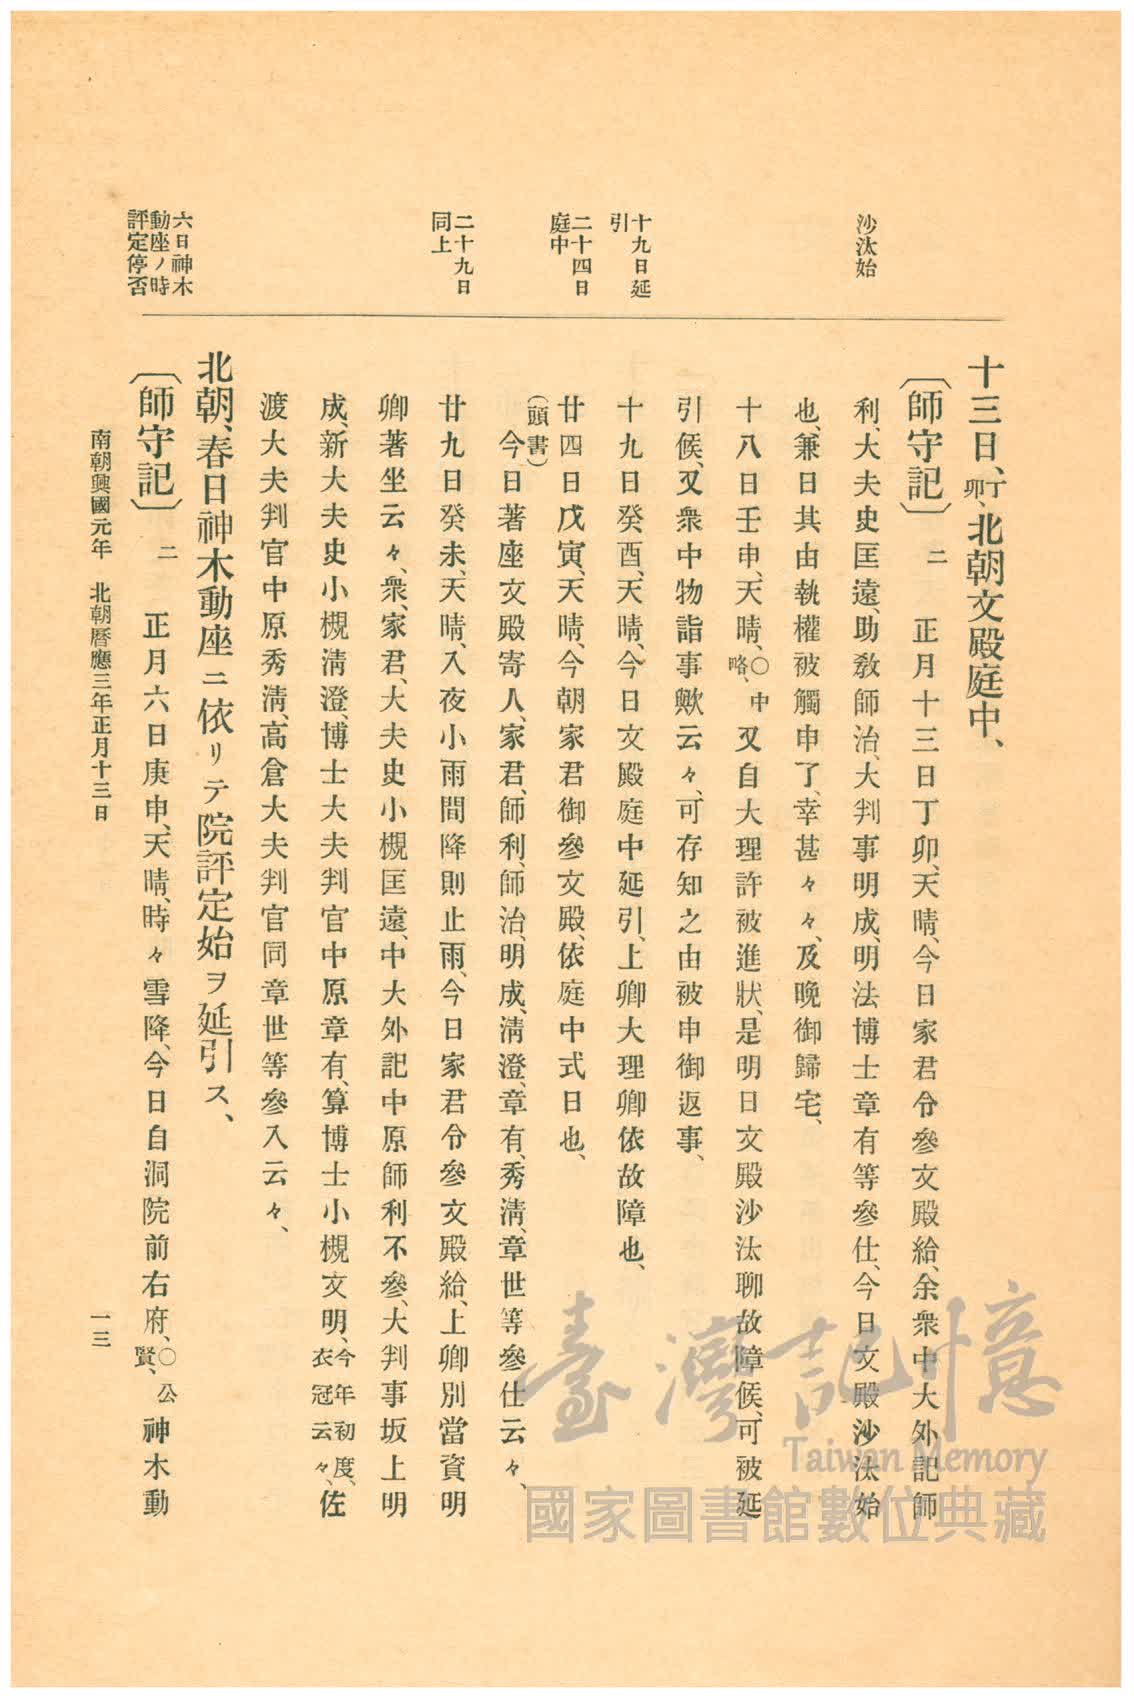 沙汰始
十九日延
引
二十四日
庭中
二十九日
同上
六日神木
動座ノ時
評定停否
十三日、丁卯、北朝文殿庭中、
〔師守記〕 二 正月十三日丁卯、天晴、今日家君令參文殿給、余衆中大外記師
利、大夫史匡遠、助教師治、大判事明成、明法博士章有等參仕、今日文殿沙汰始
也、兼日其由執權被觸申了、幸甚々々、及晚御歸宅、
十八日壬申、天晴、〇中略、又自大理許被進狀、是明日文殿沙汰聊故障候、可被延
引候、又衆中物詣事歟云々、可存知之由被申御返事、
十九日癸酉、天晴、今日文殿庭中延引、上卿大理卿依故障也、
廿四日戊寅、天晴、今朝家君御參文殿、依庭中式日也、
（頭書）
今日著座文殿寄人、家君、師利、師治、明成、淸澄、章有、秀淸、章世等參仕云々、
廿九日癸未、天晴、入夜小雨間降則止雨、今日家君令參文殿給、上卿別當資明
卿著坐云々、衆、家君、大夫史小槻匡遠、中大外記中原師利不參、大判事坂上明
成、新大夫史小槻淸澄、博士大夫判官中原章有、算博士小槻文明、今年初度、衣冠云々、佐
渡大夫判官中原秀淸、高倉大夫判官同章世等參入云々、
北朝、春日神木動座ニ依リテ院評定始ヲ延引ス、
〔師守記〕 二 正月六日庚申、天晴、時々雪降、今日自洞院前右府、〇公賢、神木動
南朝興國元年 北朝曆應三年正月十三日
一三
臺灣記憶
Taiwan Memory
國家圖書館數位典藏